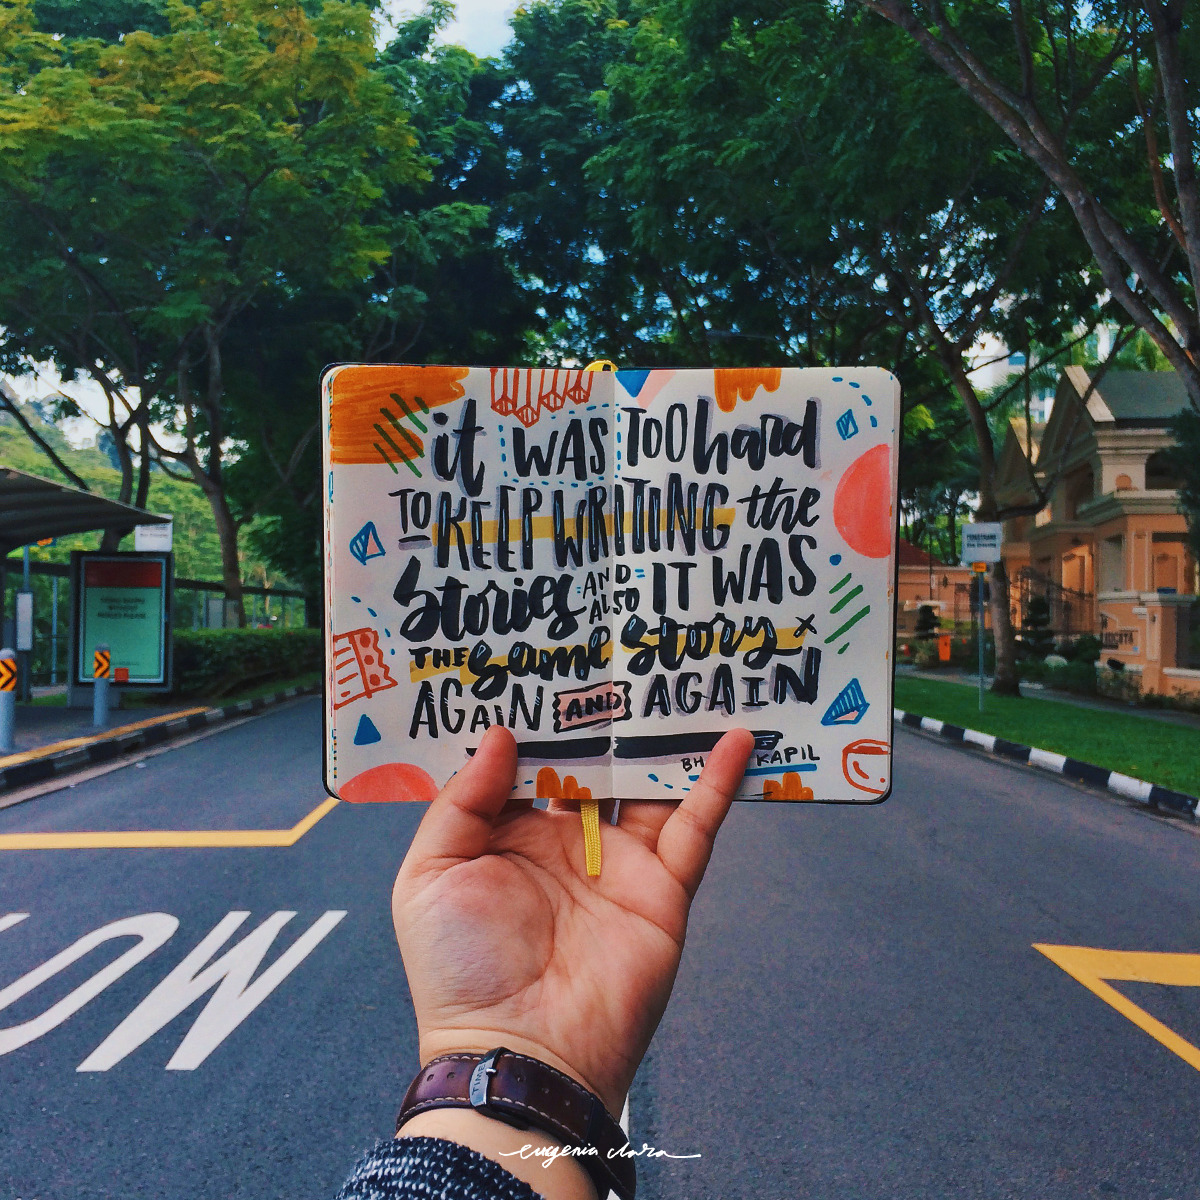 it WAS TOO hard
TO KEEP WRITING the
Stories AND ALSO IT WAS
THE same story x
AGAIN AND AGAIN
BH KAPIL
OW
TIMEX
eugenia clara